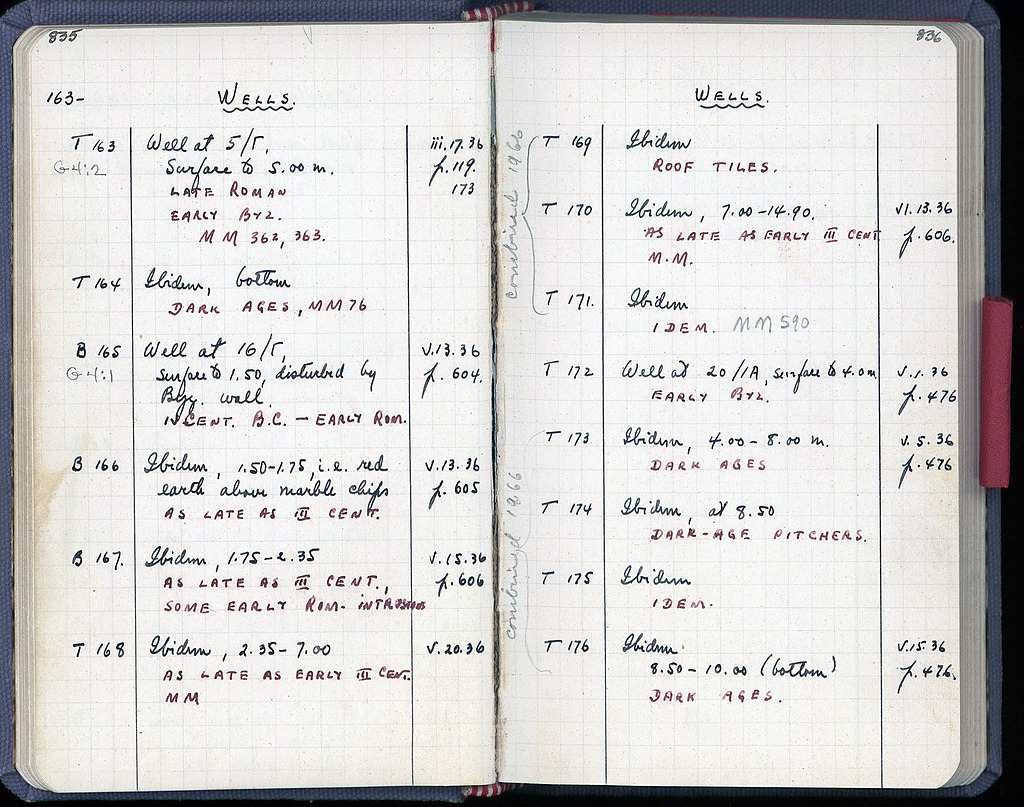 835
163-
WELLS.
T 163 Well at 5/Γ, iii.17.36
G 4:2 Surface to 5.00 m. p. 119.
LATE ROMAN 173
EARLY BYZ.
MM 362, 363.
T 164 Ibidem, bottom
DARK AGES, MM 76
B 165 Well at 16/Γ, V.13.36
G 4:1 surface to 1.50, disturbed by p. 604.
Byz. wall.
IV CENT. B.C. — EARLY ROM.
B 166 Ibidem, 1.50-1.75, i.e. red V.13.36
earth above marble chips p. 605
AS LATE AS III CENT.
B 167. Ibidem, 1.75-2.35 V.15.36
AS LATE AS III CENT., p. 606
SOME EARLY ROM- INTRUSIONS
T 168 Ibidem, 2.35-7.00 V.20.36
AS LATE AS EARLY III CENT.
MM
836
WELLS.
combined 1966
T 169 Ibidem
ROOF TILES.
T 170 Ibidem, 7.00-14.90. VI.13.36
AS LATE AS EARLY III CENT p. 606.
M.M.
T 171. Ibidem
IDEM. MM 590
T 172 Well at 20/IA, surface to 4.0 m V.1.36
EARLY BYZ. p. 476
combined 1966
T 173 Ibidem, 4.00-8.00 m. V.5.36
DARK AGES p. 476
T 174 Ibidem, at 8.50
DARK-AGE PITCHERS.
T 175 Ibidem
IDEM.
T 176 Ibidem. V.15.36
8.50-10.00 (bottom) p. 476.
DARK AGES.